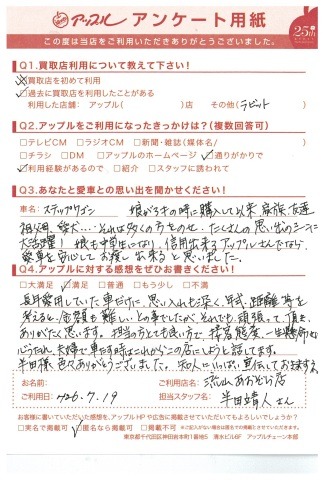 アップル アンケート用紙
25th
この度は当店をご利用いただきありがとうございました。
Q1.買取店利用について教えて下さい!
□買取店を初めて利用
□過去に買取店を利用したことがある
利用した店舗: アップル( )店 その他(ラビット)
Q2.アップルをご利用になったきっかけは?(複数回答可)
□テレビCM □ラジオCM □新聞・雑誌(媒体名/ )
□チラシ □DM □アップルのホームページ ☑通りがかりで
☑利用経験があるので □紹介 □スタッフに誘われて
Q3.あなたと愛車との思い出をお聞かせください!
車名: ステップワゴン 娘が3才の時に購入して以来 家族、友達
祖父母、愛犬…それは多くの方をのせ たくさんの思い出のシーンに
大活躍! 娘も中学生になり、信用出来るアップルさんでなら、
愛車を安心してお渡し出来ると思いました。
Q4.アップルに対する感想をぜひお書きください!
□大満足 ☑満足 □普通 □もう少し □不満
長年愛用していた車だけに、思い入れも深く、年式、距離等を
考えると、金額も難しいとの事でしたが、それでも頑張って頂き、
ありがたく思います。担当の方とても良い方で、接客態度、一生懸命さも
心うたれ、夫婦で車を売る時はこれからこの店にしようと話してます。
半田様 色々ありがとうございました。知人にりんぱい、宣伝しておきます
お名前: ご利用店名: 流山おおぞら店
ご利用日: H26.7.19 担当スタッフ名: 半田靖人さん
お客様に書いていただいた感想を、アップルHPや広告に掲載させていただいてもよろしいでしょうか?
□実名で掲載可 ☑匿名なら掲載可 □掲載不可 ※ご記入がない場合は匿名での掲載とさせていただきます。
東京都千代田区神田岩本町1番地5 清水ビル6F アップルチェーン本部